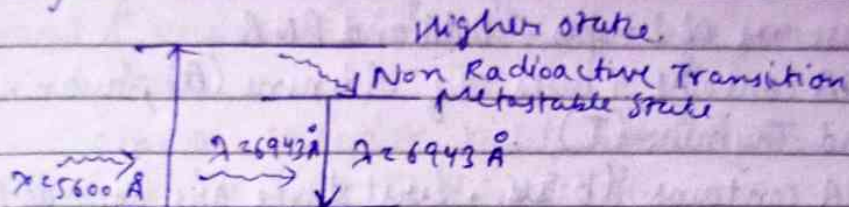 Higher state.
Non Radioactive Transition
Metastable State
λ=5600 Å
λ=6943Å
λ=6943 Å